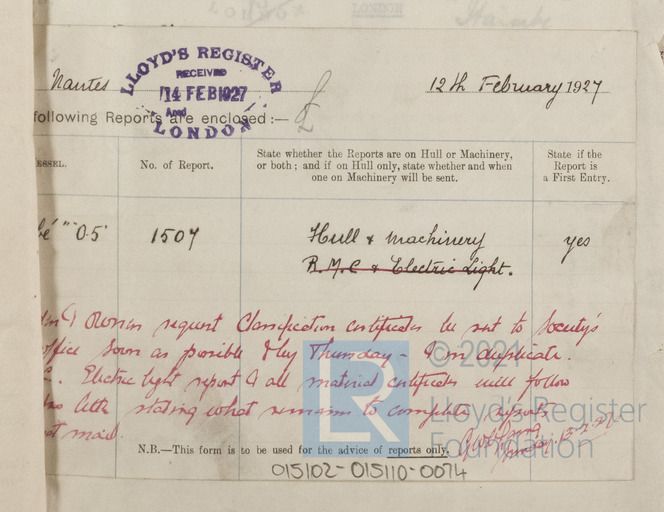 LONDON
Nantes
12th February 1927
LLOYD'S REGISTER
RECEIVED
14 FEB 1927
LONDON
following Reports are enclosed :—
ESSEL.
No. of Report.
State whether the Reports are on Hull or Machinery,
or both ; and if on Hull only, state whether and when
one on Machinery will be sent.
State if the
Report is
a First Entry.
1507
Hull & machinery
yes
R.M.C & Electric Light.
Owners request Classification certificates be sent to Society's
office soon as possible Thursday - in duplicate.
Electric light report & all material certificates will follow
letter stating what remains to complete report
mail.
N.B.—This form is to be used for the advice of reports only.
015102-015110-0074
LR
© 2021
Lloyd's Register
Foundation